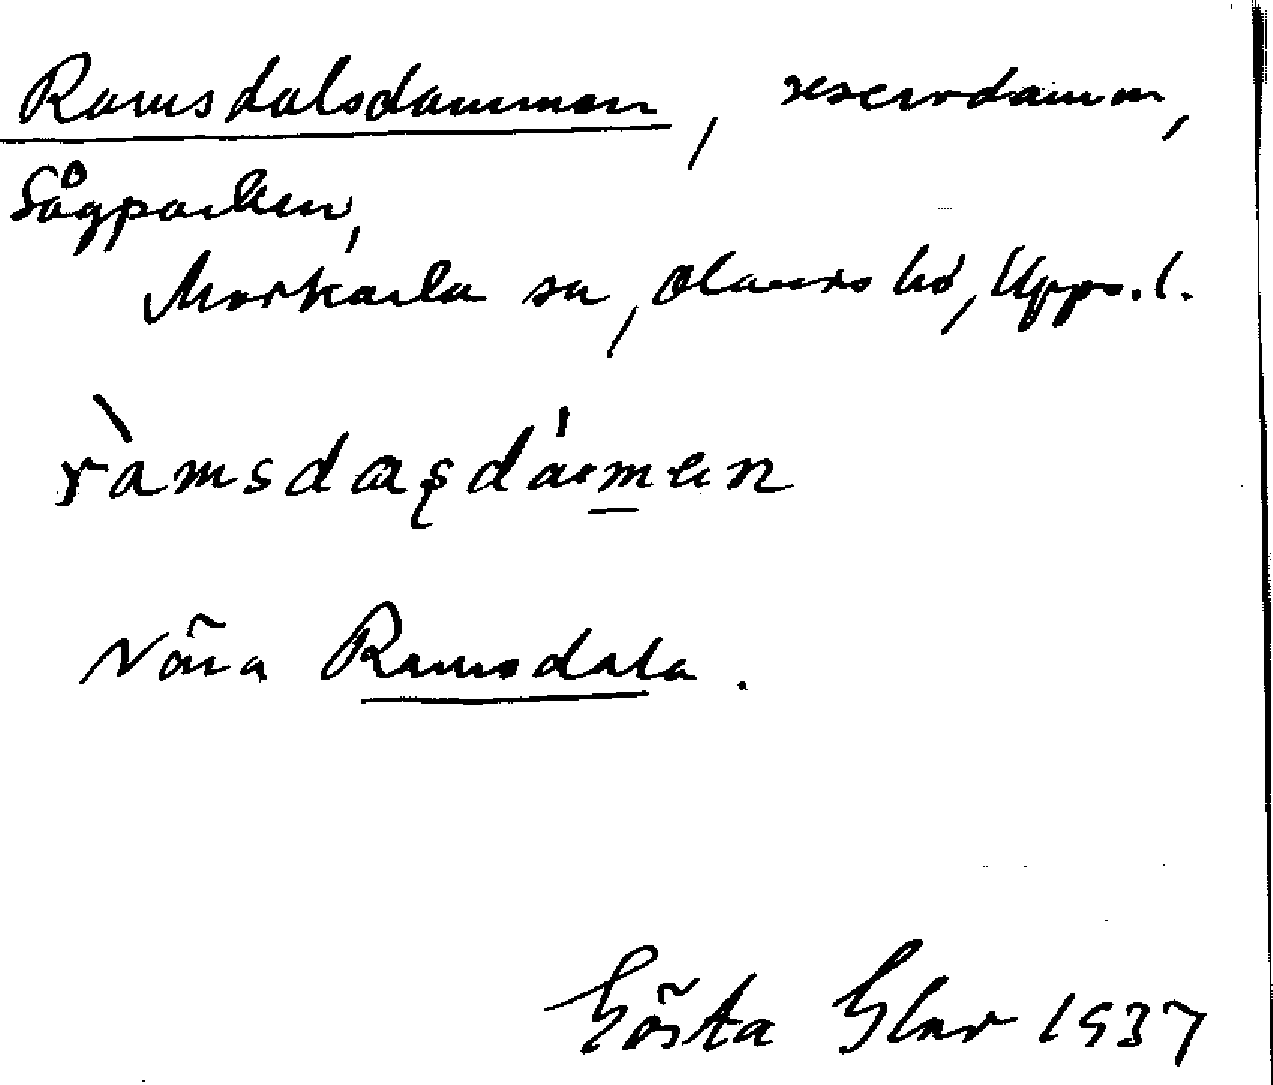 Ramsdalsdammen, reservdamm,
Sågparken,
Morkarla sn, Olands hd, Upps. l.
ràmsdaʂdámen
Nära Ramsdala.
Gösta 1937